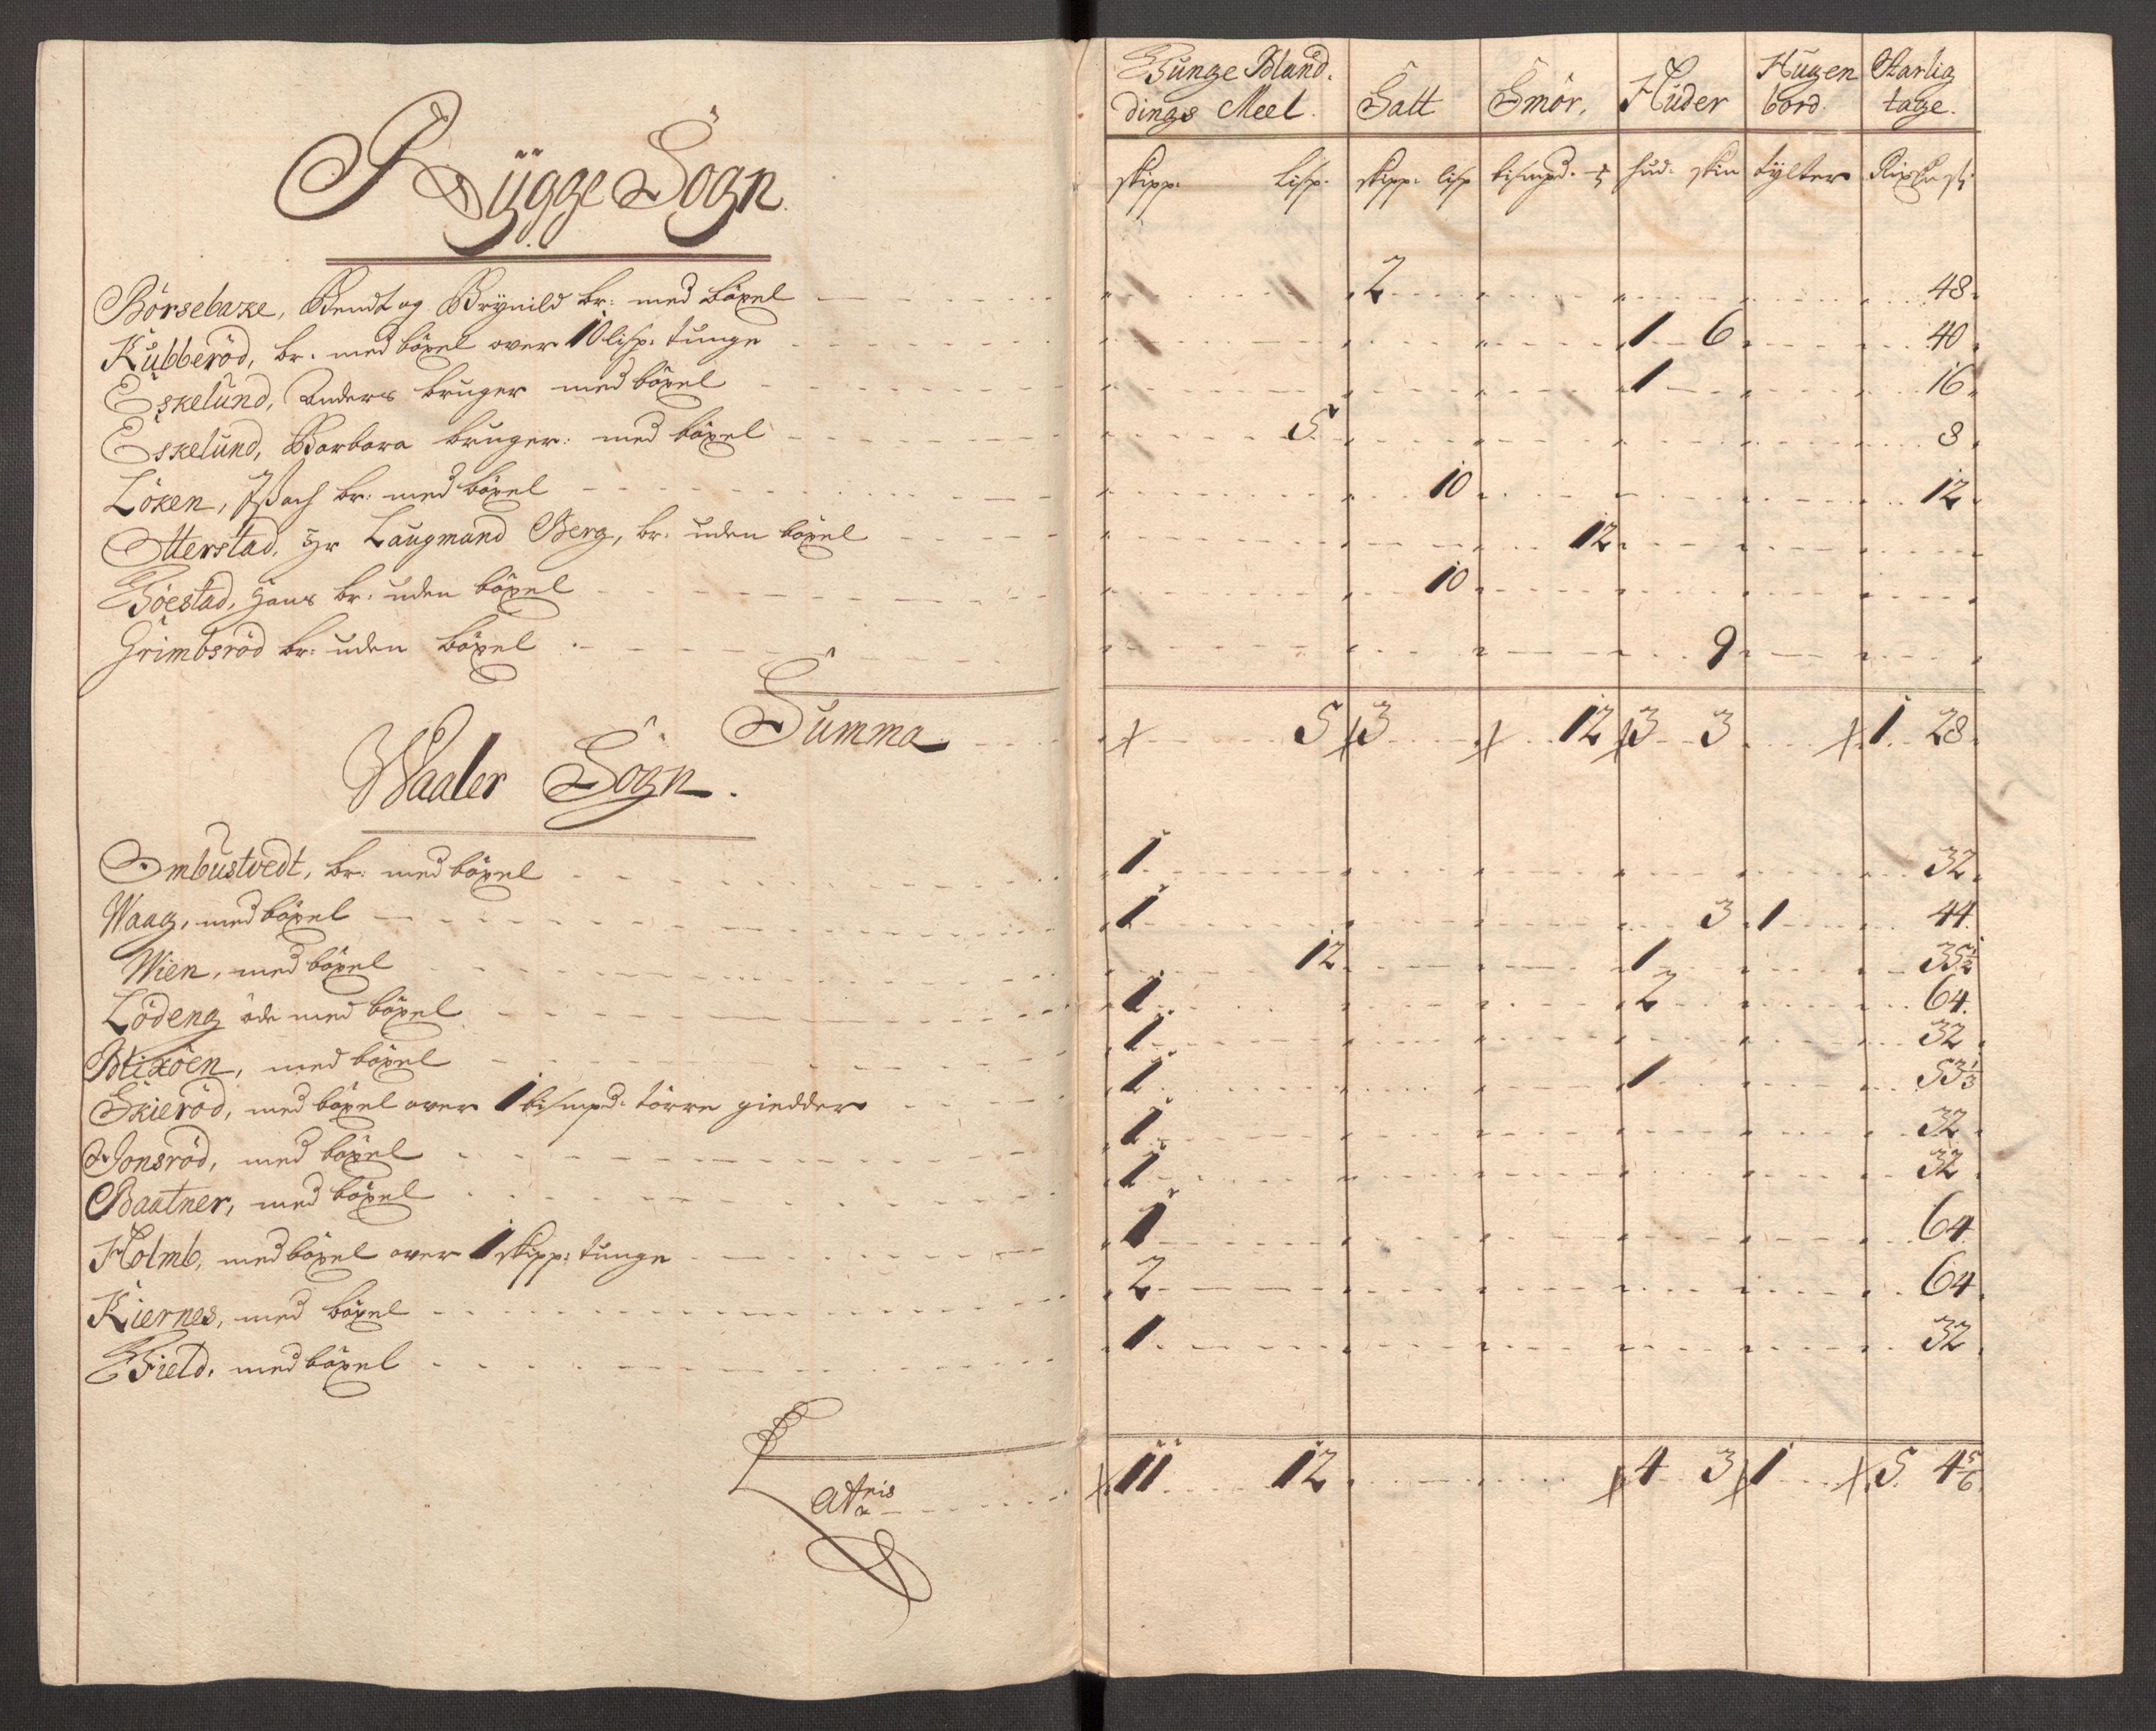 Tunge Bland.
dings Meel. Salt Smör. Huder Hugen bord. Aarlig tage.
skipp: lisp. skipp: lisp bismpd. hud: skin tylter
Rÿgge Sogn.
Börsebake, Bendt og Brÿnild br: med böxel 2 48
Kubberöd, br. med böxel over 10 lisp: tunge 1 6 40
Eskelund, Anders bruger med böxel 1 16
Eskelund, Barbara bruger: med böxel 5 8
Löken, Isach br: med böxel 10 12
Otterstad, Hr Laugmand Berg, br. uden böxel 12
Töestad, Hans br. uden böxel 10
Grimbsröd br: uden böxel 9
Summa 5 3 12 3 3 1 28
Waaler Sogn.
Ombustvedt, br: med böxel 1 32
Waag, med böxel 1 3 1 44
Wien, med böxel 12 1 35½
Lödeng öde med böxel 1 2 64
Blixöen, med böxel 1 32
Skieröd, med böxel over 1 bismpd: törre giedder 1 1 53⅓
Jonsröd, med böxel 1 32
Baatner, med böxel 1 32
Holmb, med böxel over 1 skipp: tunge 1 64
Kiernes, med böxel 2 64
Field, med böxel 1 32
Lateris 11 12 4 3 1 5 4⅚